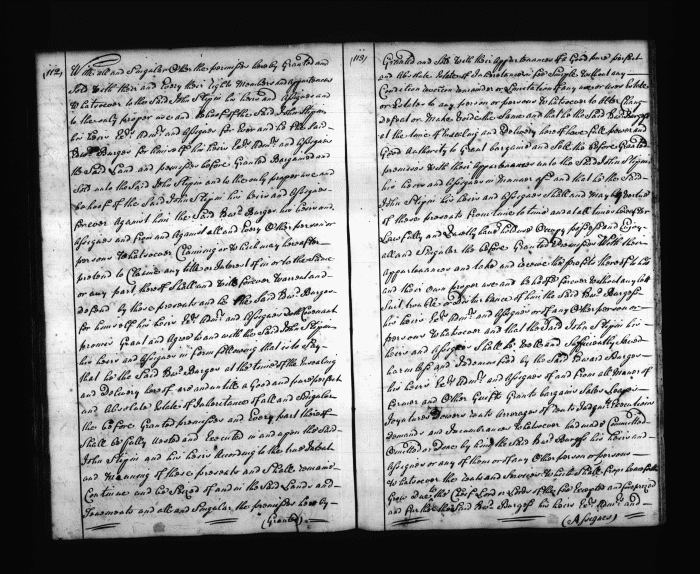 (112)
With all and Singular Other the premisses hereby Granted and
Sold With their and Every their Rights Members and appurtenances
Whatsoever to the Said John Stepin his heirs and Assigns and
to the only proper use and behoof of the Said John Stepin
his heirs Exrs Admrs and Assigns for Ever and he the Said
Burges for himself his heirs Exrs Admrs and Assigns
the Said Land and premisses before Granted Bargained and
Sold unto the Said John Stepin and to the only proper use and
behoof of the Said John Stepin his heirs and Assigns
forever Against him the Said Burges his heirs and
Assigns and from and Against all and Every Other person or
persons Whatsoever Claiming or Which may hereafter
pretend to Claim any title or Interest of in or to the Same
or any part thereof Shall and Will forever Warrant and
defend by these presents and he the Said Burges
for himself his heirs Exrs Admrs and Assigns doth Covenant
promise Grant and Agree to and with the Said John Stepin
his heirs and Assigns in form following that is to Say
that he the Said Burges at the time of the Ensealing
and Delivery hereof and untill a Good and pure perfect
and Absolute Estate of Inheritance of all and Singular
the before Granted premisses and Every part thereof
Shall be fully Vested and Executed in and upon the Said
John Stepin and his heirs According to the true Intent
and Meaning of these presents and Shall remain
Continue and be Seized of and in the Said Lands and
Tenements and all and Singular the premisses hereby
(Granted)
(113)
Granted and Sold With their Appurtenances of a Good pure perfect
and Absolute Estate of Inheritance in fee Simple Without any
Condition reversion remainder or Limitation of any use or uses Estate
or Estates to any person or persons Whatsoever to alter Change
defeat or Make Void the Same and that he the Said Burges
at the time of Ensealing and Delivery hereof have full power and
Good Authority to Grant bargain and Sell the before Granted
premisses With their Appurtenances unto the Said John Stepin
his heirs and Assigns in Manner and that he the Said
John Stepin his heirs and Assigns Shall and May by Vertue
of these presents from time to time and at all times hereafter
Lawfully and have hold use Occupy possess and Enjoy
all and Singular the before Granted premisses With their
Appurtenances and take and receive the profits thereof to his
and their own proper use and behoof forever Without any lett
Suit trouble or disturbance of him the Said Burges
his heirs Exrs Admrs and Assigns or of any Other person or
persons Whatsoever and that the Said John Stepin his
heirs and Assigns Shall be Well and Sufficiently Saved
harmless and Indemnified by the Said Burges
his heirs Exrs Admrs and Assigns of and from all Manner of
former and Other Guifts Grants bargains Sales Leases
Joyntures Dowers rents Arrerages of rents Executions
Demands and Incumbrances Whatsoever had made Committed
Omitted or done by him the Said Burges his heirs and
Assigns or any of them or of any Other person or persons
Whatsoever the rents and Services Which Shall from henceforth
Grow due the Cheif Lord or Lords of the fee Excepted and foreprized
and further the Said Burges his heirs Exrs Admrs and
(Assigns)